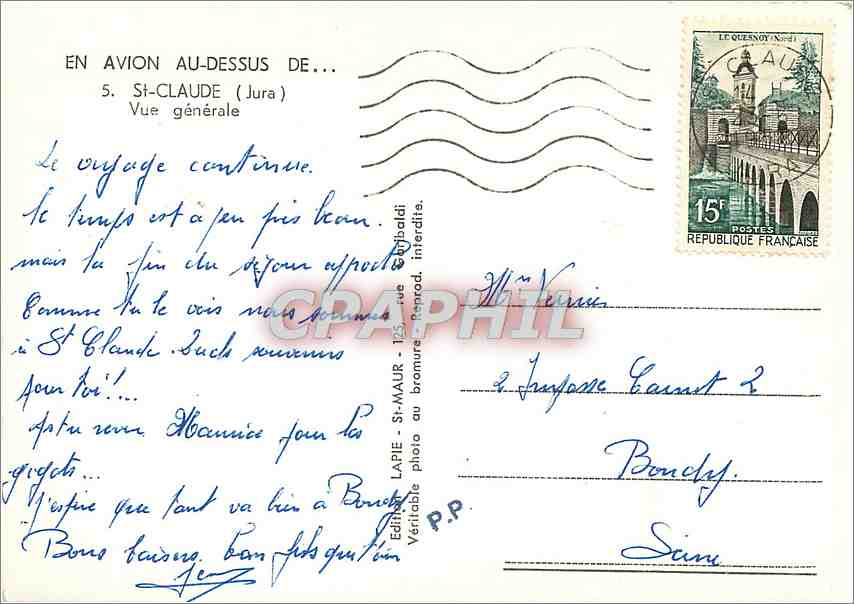 EN AVION AU-DESSUS DE...
5. St-CLAUDE (Jura)
Vue générale
Le voyage continue.
le temps est à peu près beau.
mais la fin du séjour approche
Comme tu le vois nous sommes
à St Claude. Quels souvenirs
pour toi!...
As tu revu Maurice pour les
gigots...
J'espère que tout va bien à Bondy
Bons baisers. ton fils qui t'aime
Jean
Edition LAPIE - St-MAUR - 125, rue Garibaldi
Véritable photo au bromure - Reprod. interdite.
P.P
LE QUESNOY (Nord)
15F
POSTES
REPUBLIQUE FRANÇAISE
CLAUDE
Mr Vernier
2 Impasse Carnot 2
Bondy.
Seine
CPAPHIL